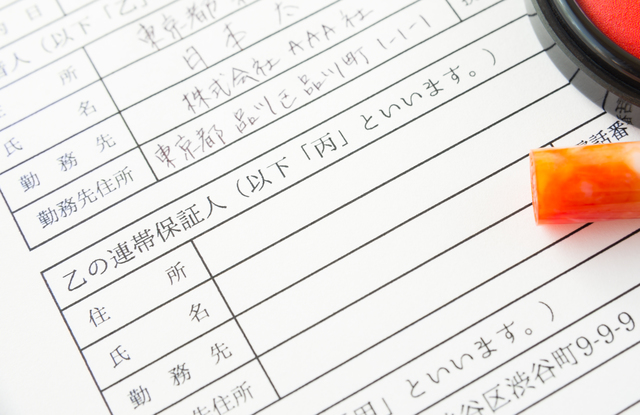 人（以下「乙」
住 所 東京都
氏 名 日本 太
勤 務 先 株式会社 AAA社
勤務先住所 東京都 品川区 品川町 1-1-1
乙の連帯保証人（以下「丙」といいます。）
住 所
氏 名
勤 務 先
先住所
」といいます。）
谷区渋谷町9-9-9